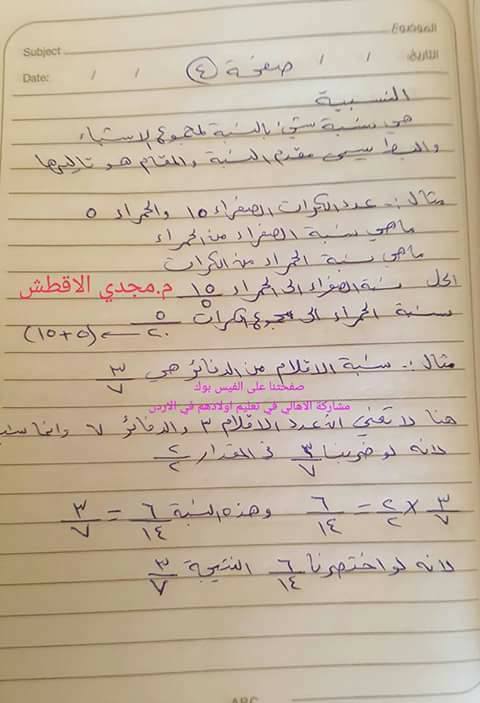 الموضوع
Subject
التاريخ / / صفحة (٤)
Date: / /
النسبية
هي نسبة شيء بالنسبة لمجموع الاشياء
والبسط يسمى مقدم النسبة والمقام هو تاليها
مثال :- عدد الكرات الصفراء ١٥ والحمراء ٥
ماهي نسبة الصفراء من الحمراء
ماهي نسبة الحمراء من الكرات
الحل نسبة الصفراء الى الحمراء ١٥/٥ م.مجدي الاقطش
نسبة الحمراء الى مجموع الكرات ٥/٢٠ ← (٥+١٥)
مثال :- نسبة الاقلام من الدفاتر هي ٣/٧
صفحتنا على الفيس بوك
مشاركة الاهالي في تعليم اولادهم في الاردن
هنا لا تعني ان عدد الاقلام ٣ والدفاتر ٧ وانما
لانه لو ضربنا ٣/٧ في المقدار ٢/٢
٣/٧ × ٢/٢ = ٦/١٤ وهذه النسبة ٦/١٤ = ٣/٧
لانه لو اختصرنا ٦/١٤ النتيجة ٣/٧